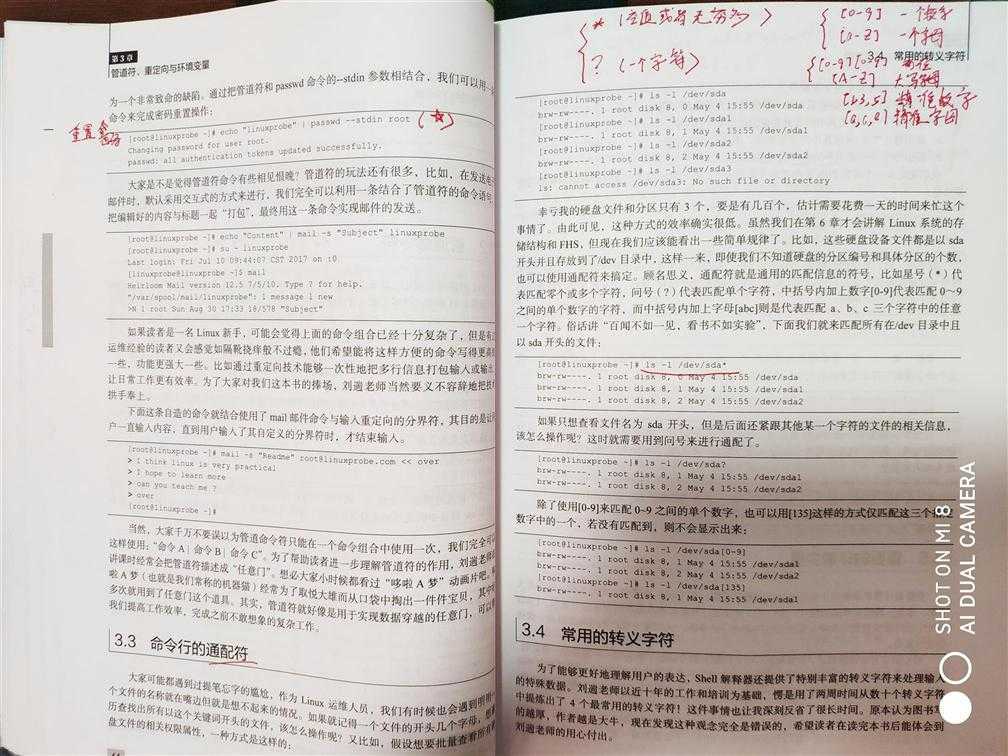 第3章
管道符、重定向与环境变量
为一个非常致命的缺陷。通过把管道符和 passwd 命令的--stdin 参数相结合，我们可以用一
命令来完成密码重置操作：
[root@linuxprobe ~]# echo "linuxprobe" | passwd --stdin root
Changing password for user root.
passwd: all authentication tokens updated successfully.
大家是不是觉得管道符命令有些相见恨晚？管道符的玩法还有很多，比如，在发送电
邮件时，默认采用交互式的方式来进行，我们完全可以利用一条结合了管道符的命令语句，
把编辑好的内容与标题一起“打包”，最终用这一条命令实现邮件的发送。
[root@linuxprobe ~]# echo "Content" | mail -s "Subject" linuxprobe
[root@linuxprobe ~]# su - linuxprobe
Last login: Fri Jul 10 09:44:07 CST 2017 on :0
[linuxprobe@linuxprobe ~]$ mail
Heirloom Mail version 12.5 7/5/10. Type ? for help.
"/var/spool/mail/linuxprobe": 1 message 1 new
>N 1 root Sun Aug 30 17:33 18/578 "Subject"
如果读者是一名 Linux 新手，可能会觉得上面的命令组合已经十分复杂了，但是有
运维经验的读者又会感觉如隔靴挠痒般不过瘾，他们希望能将这样方便的命令写得更
一些，功能更强大一些。比如通过重定向技术能够一次性地把多行信息打包输入或输出，
让日常工作更有效率。为了大家对我们这本书的捧场，刘遄老师当然要义不容辞地把技
拱手奉上。
下面这条自造的命令就结合使用了 mail 邮件命令与输入重定向的分界符，其目的是让
户一直输入内容，直到用户输入了其自定义的分界符时，才结束输入。
[root@linuxprobe ~]# mail -s "Readme" root@linuxprobe.com << over
> I think linux is very practical
> I hope to learn more
> can you teach me ?
> over
[root@linuxprobe ~]#
当然，大家千万不要误以为管道命令符只能在一个命令组合中使用一次，我们完全可以
这样使用：“命令 A | 命令 B | 命令 C”。为了帮助读者进一步理解管道符的作用，刘遄老师
讲课时经常会把管道符描述成“任意门”。想必大家小时候都看过“哆啦 A 梦”动画片吧。
啦 A 梦（也就是我们常称的机器猫）经常为了取悦大雄而从口袋中掏出一件件宝贝，其中
多次就用到了任意门这个道具。其实，管道符就好像是用于实现数据穿越的任意门，可以
我们提高工作效率，完成之前不敢想象的复杂工作。
3.3 命令行的通配符
大家可能都遇到过提笔忘字的尴尬，作为 Linux 运维人员，我们有时候也会遇到明明一
个文件的名称就在嘴边但就是想不起来的情况。如果就记得一个文件的开头几个字母，想
历查找出所有以这个关键词开头的文件，该怎么操作呢？又比如，假设想要批量查看所有
盘文件的相关权限属性，一种方式是这样的：
{ *
? (一个字符)
[0-9] 一个数字
[a-z] 一个字母
3.4 常用的转义字符
[0-9][0-9] 两位
[A-Z] 大写字母
[1,3,5] 精准数字
[a,c,e] 精准字母
[root@linuxprobe ~]# ls -l /dev/sda
brw-rw----. 1 root disk 8, 0 May 4 15:55 /dev/sda
[root@linuxprobe ~]# ls -l /dev/sda1
brw-rw----. 1 root disk 8, 1 May 4 15:55 /dev/sda1
[root@linuxprobe ~]# ls -l /dev/sda2
brw-rw----. 1 root disk 8, 2 May 4 15:55 /dev/sda2
[root@linuxprobe ~]# ls -l /dev/sda3
ls: cannot access /dev/sda3: No such file or directory
幸亏我的硬盘文件和分区只有 3 个，要是有几百个，估计需要花费一天的时间来忙这个
事情了。由此可见，这种方式的效率确实很低。虽然我们在第 6 章才会讲解 Linux 系统的存
储结构和 FHS，但现在我们应该能看出一些简单规律了。比如，这些硬盘设备文件都是以 sda
开头并且存放到了/dev 目录中，这样一来，即使我们不知道硬盘的分区编号和具体分区的个数，
也可以使用通配符来搞定。顾名思义，通配符就是通用的匹配信息的符号，比如星号（*）代
表匹配零个或多个字符，问号（?）代表匹配单个字符，中括号内加上数字[0-9]代表匹配 0～9
之间的单个数字的字符，而中括号内加上字母[abc]则是代表匹配 a、b、c 三个字符中的任意
一个字符。俗话讲“百闻不如一见，看书不如实验”，下面我们就来匹配所有在/dev 目录中且
以 sda 开头的文件：
[root@linuxprobe ~]# ls -l /dev/sda*
brw-rw----. 1 root disk 8, 0 May 4 15:55 /dev/sda
brw-rw----. 1 root disk 8, 1 May 4 15:55 /dev/sda1
brw-rw----. 1 root disk 8, 2 May 4 15:55 /dev/sda2
如果只想查看文件名为 sda 开头，但是后面还紧跟其他某一个字符的文件的相关信息，
该怎么操作呢？这时就需要用到问号来进行通配了。
[root@linuxprobe ~]# ls -l /dev/sda?
brw-rw----. 1 root disk 8, 1 May 4 15:55 /dev/sda1
brw-rw----. 1 root disk 8, 2 May 4 15:55 /dev/sda2
除了使用[0-9]来匹配 0~9 之间的单个数字，也可以用[135]这样的方式仅匹配这三个指定
数字中的一个，若没有匹配到，则不会显示出来：
[root@linuxprobe ~]# ls -l /dev/sda[0-9]
brw-rw----. 1 root disk 8, 1 May 4 15:55 /dev/sda1
brw-rw----. 1 root disk 8, 2 May 4 15:55 /dev/sda2
[root@linuxprobe ~]# ls -l /dev/sda[135]
brw-rw----. 1 root disk 8, 1 May 4 15:55 /dev/sda1
3.4 常用的转义字符
为了能够更好地理解用户的表达，Shell 解释器还提供了特别丰富的转义字符来处理输入
的特殊数据。刘遄老师以近十年的工作和培训为基础，愣是用了两周时间从数十个转义字符
中提炼出了 4 个最常用的转义字符！这件事情也让我深刻反省了很长时间。原本认为图书写
的越厚，作者越是大牛，现在发现这种观念完全是错误的，希望读者在读完本书后能体会到
刘遄老师的用心付出。
SHOT ON MI 8
AI DUAL CAMERA